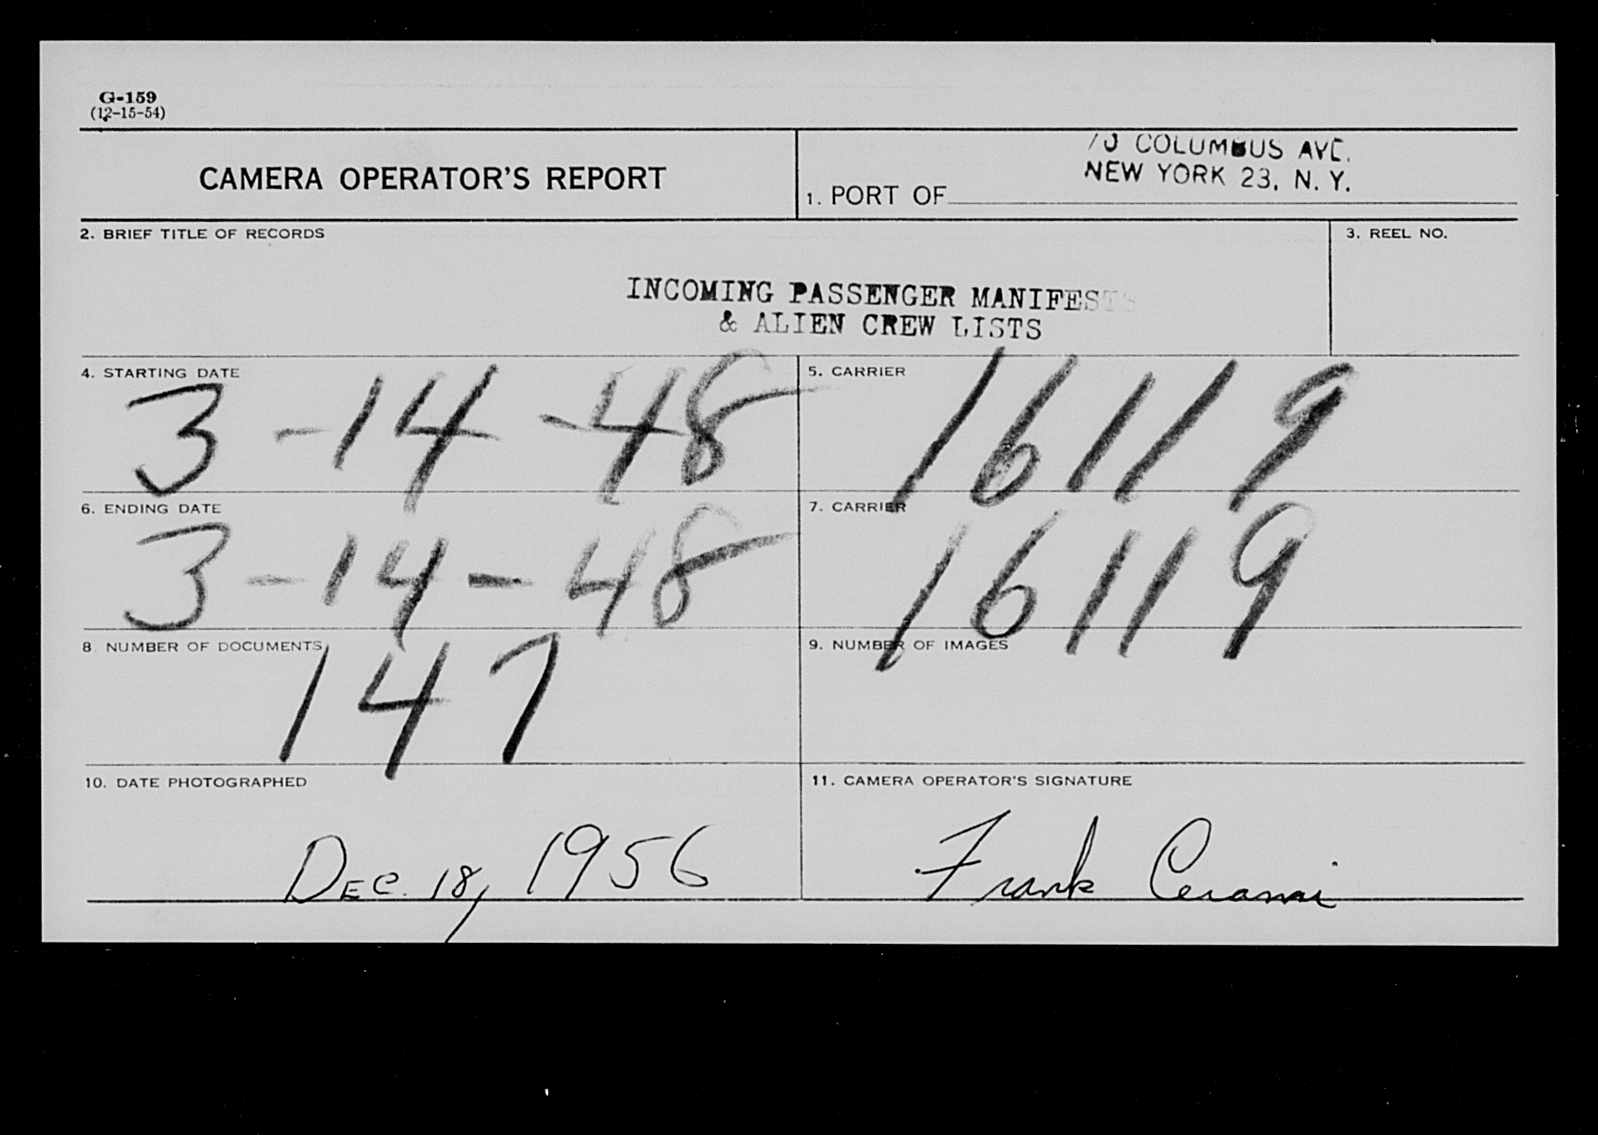 G-159
(12-15-54)
CAMERA OPERATOR'S REPORT
70 COLUMBUS AVE.
NEW YORK 23, N. Y.
1. PORT OF
2. BRIEF TITLE OF RECORDS
3. REEL NO.
INCOMING PASSENGER MANIFESTS
& ALIEN CREW LISTS
4. STARTING DATE
3-14-48
5. CARRIER
16119
6. ENDING DATE
3-14-48
7. CARRIER
16119
8 NUMBER OF DOCUMENTS
147
9. NUMBER OF IMAGES
10. DATE PHOTOGRAPHED
DEC. 18, 1956
11. CAMERA OPERATOR'S SIGNATURE
Frank Cerami